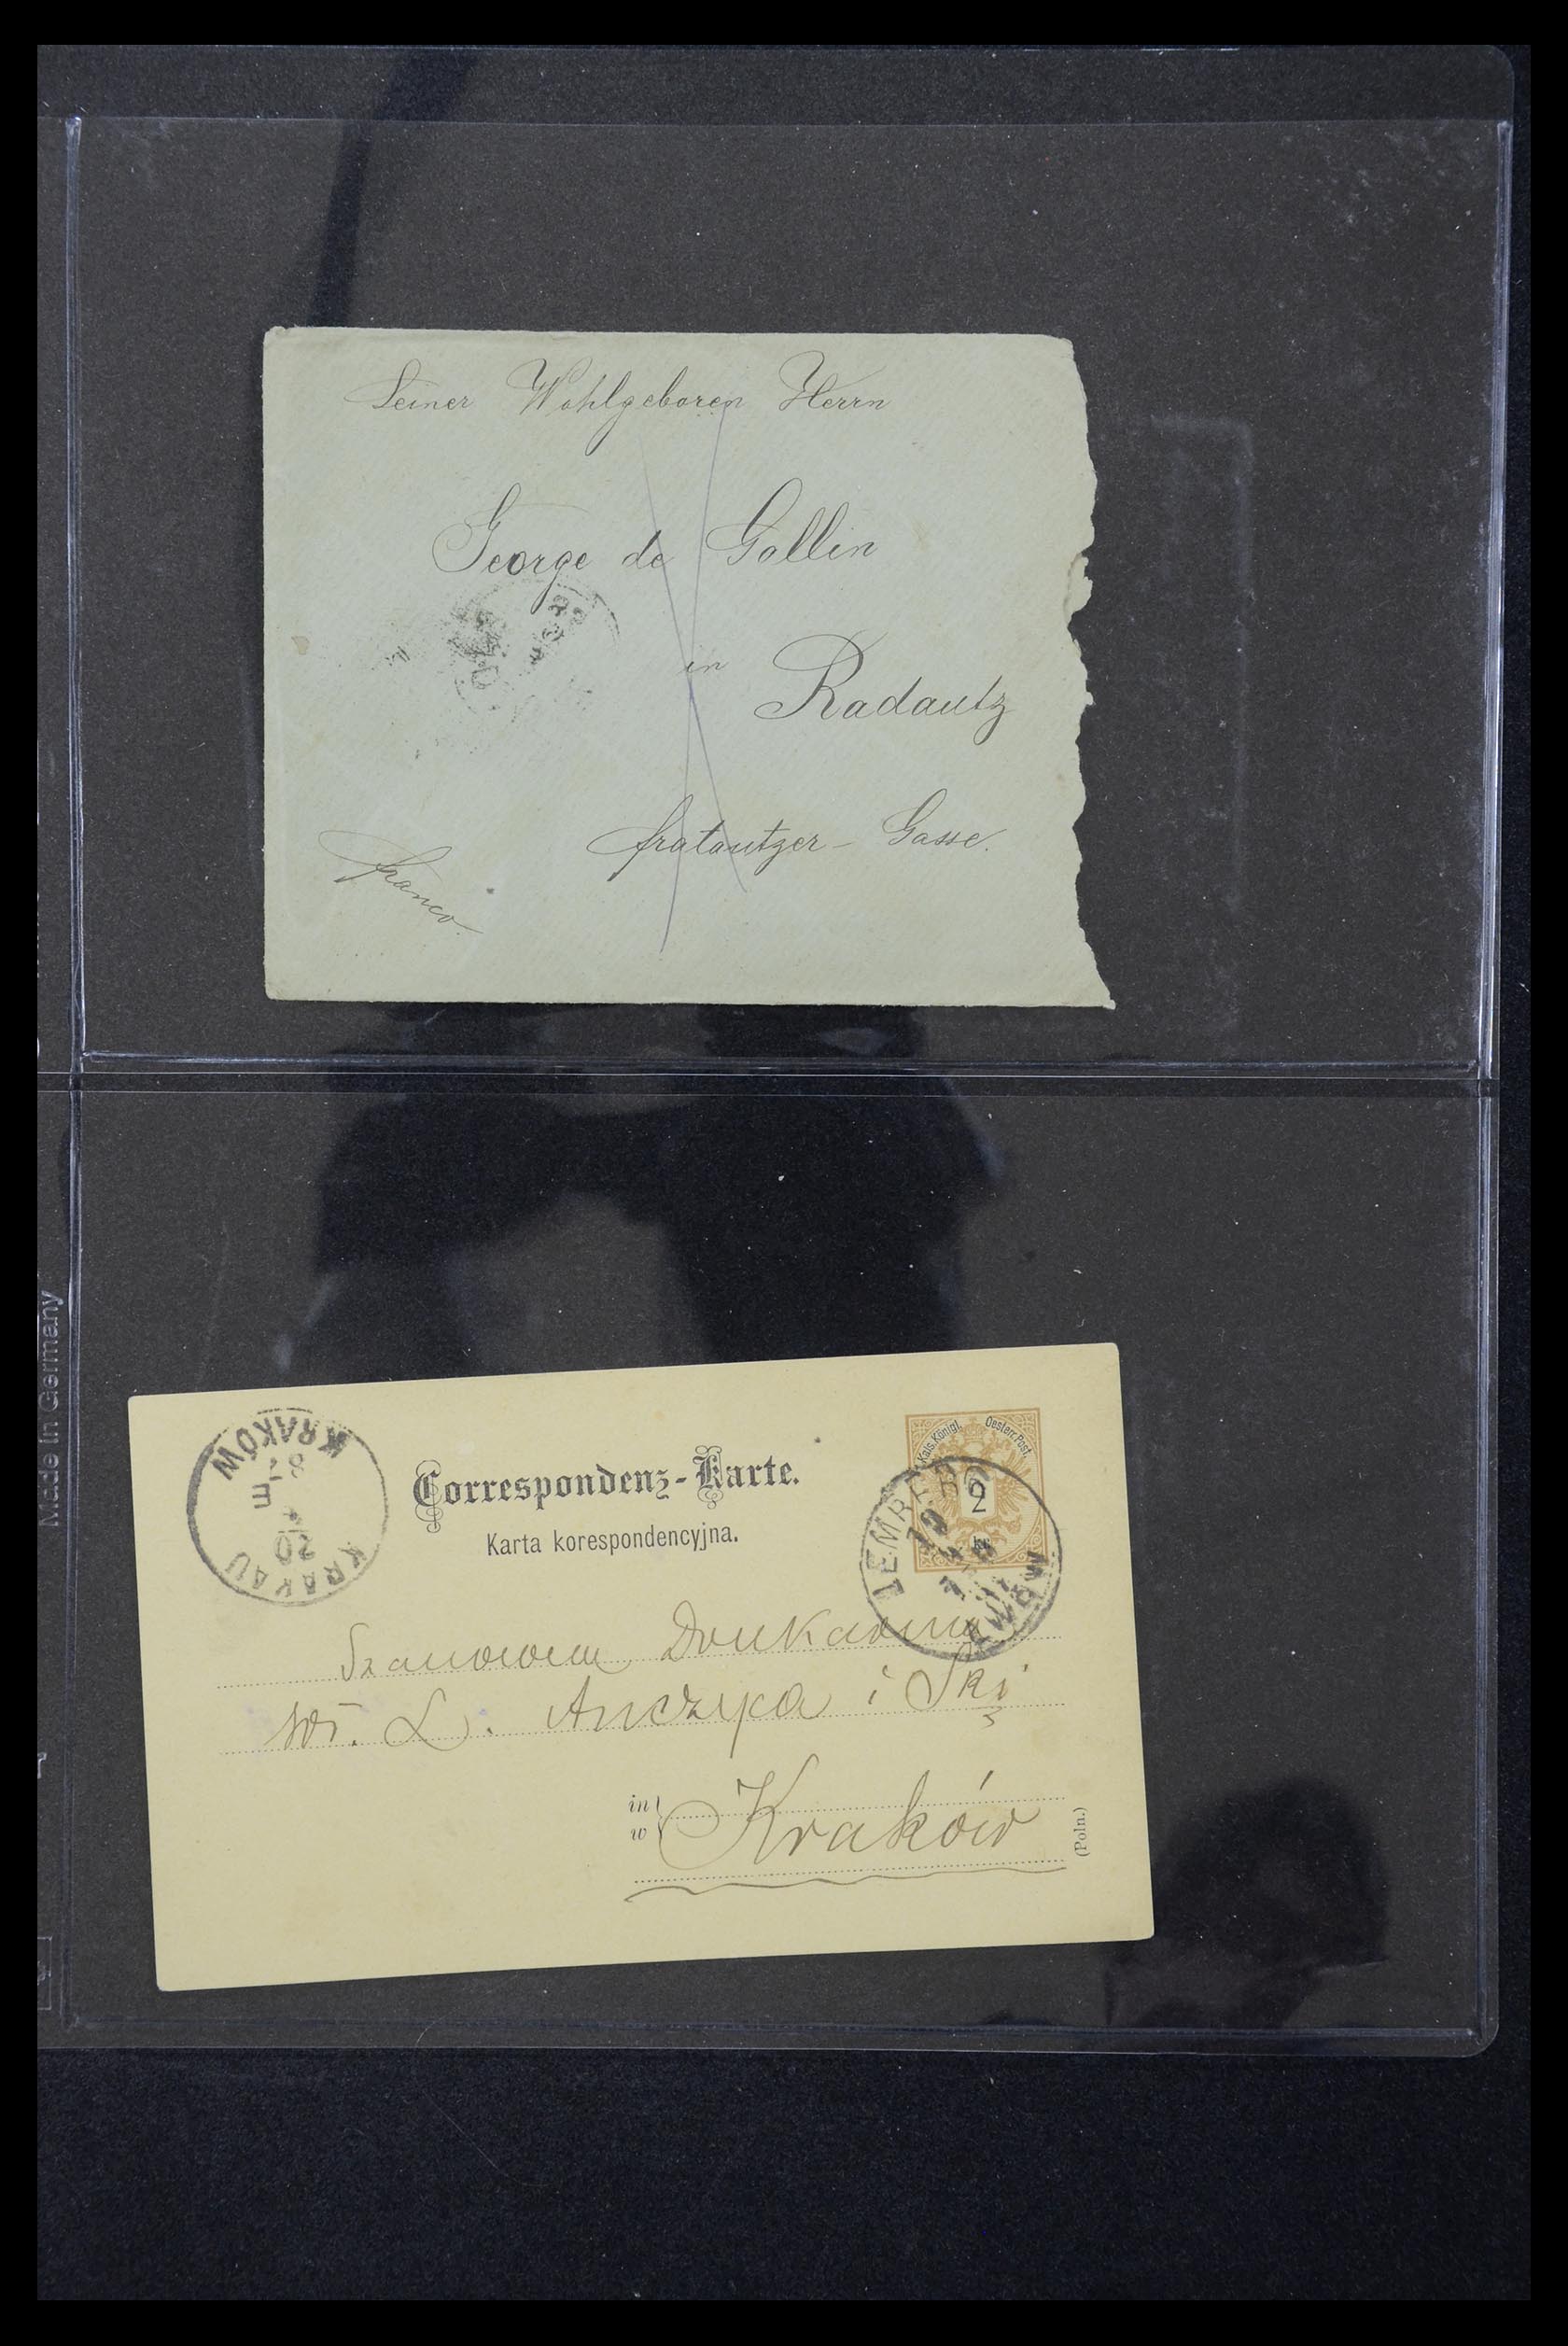 Seiner Wohlgeboren Herrn
George de Gollin
in Radautz
fratautzer - Gasse.
franco.
Made in Germany
KRAKÓW
87
E
20
KRAKAU
Correspondenz-Karte.
Karta korespondencyjna.
Kais. Königl. Oesterr. Post.
2
kr.
LEMBERG
LWÓW
Szanowna Drukarnia
Wł. L. Anczyca i Ski
in
w
Kraków
(Poln.)